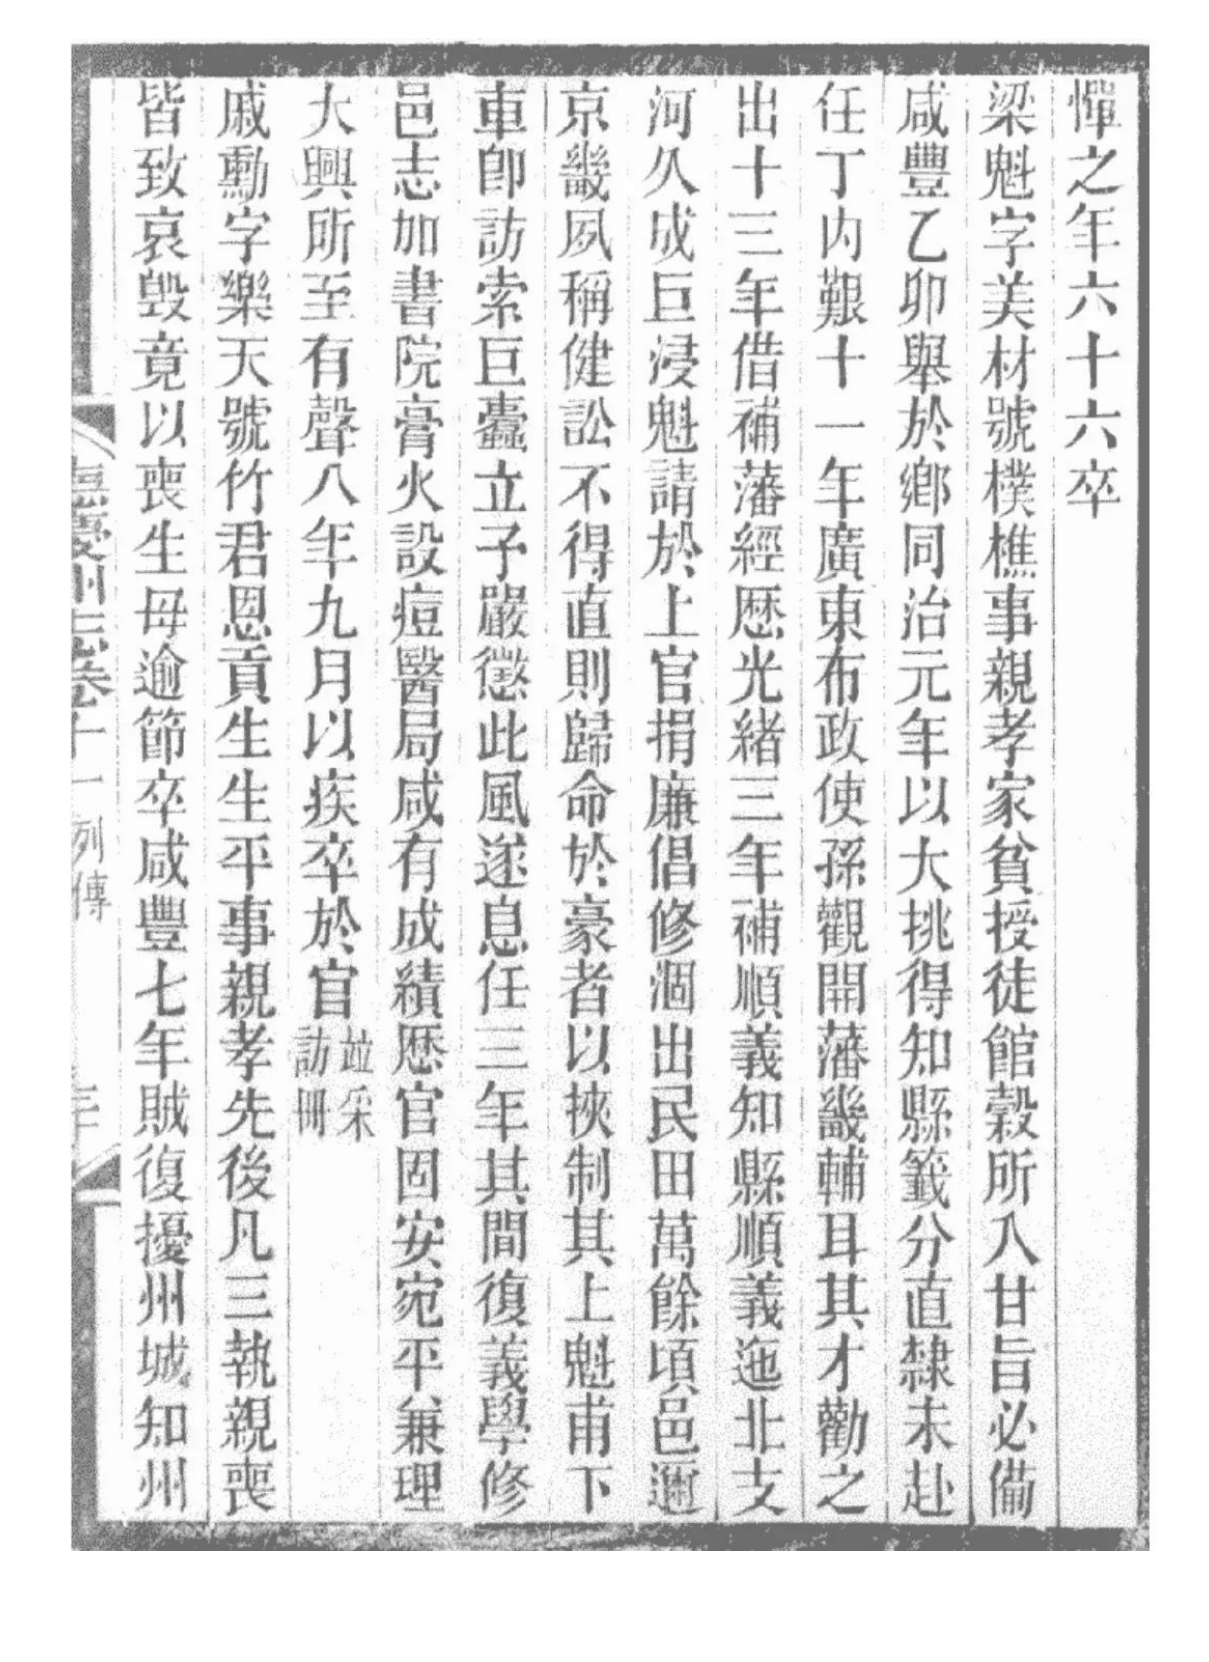 憚之年六十六卒
梁魁字美材號樸樵事親孝家貧授徒館穀所入甘旨必備
咸豐乙卯舉於鄉同治元年以大挑得知縣籤分直隸未赴
任丁內艱十一年廣東布政使孫觀開藩畿輔耳其才勸之
出十三年借補藩經歷光緒三年補順義知縣順義迤北支
河久成巨浸魁請於上官捐廉倡修涸出民田萬餘頃邑邇
京畿夙稱健訟不得直則歸命於豪者以挾制其上魁甫下
車卽訪索巨蠹立予嚴懲此風遂息任三年其間復義學修
邑志加書院膏火設痘醫局咸有成績歷官固安宛平兼理
大興所至有聲八年九月以疾卒於官竝采訪冊
戚勳字樂天號竹君恩貢生生平事親孝先後凡三執親喪
皆致哀毀竟以喪生母逾節卒咸豐七年賊復擾州城知州
州志卷十一 列傳